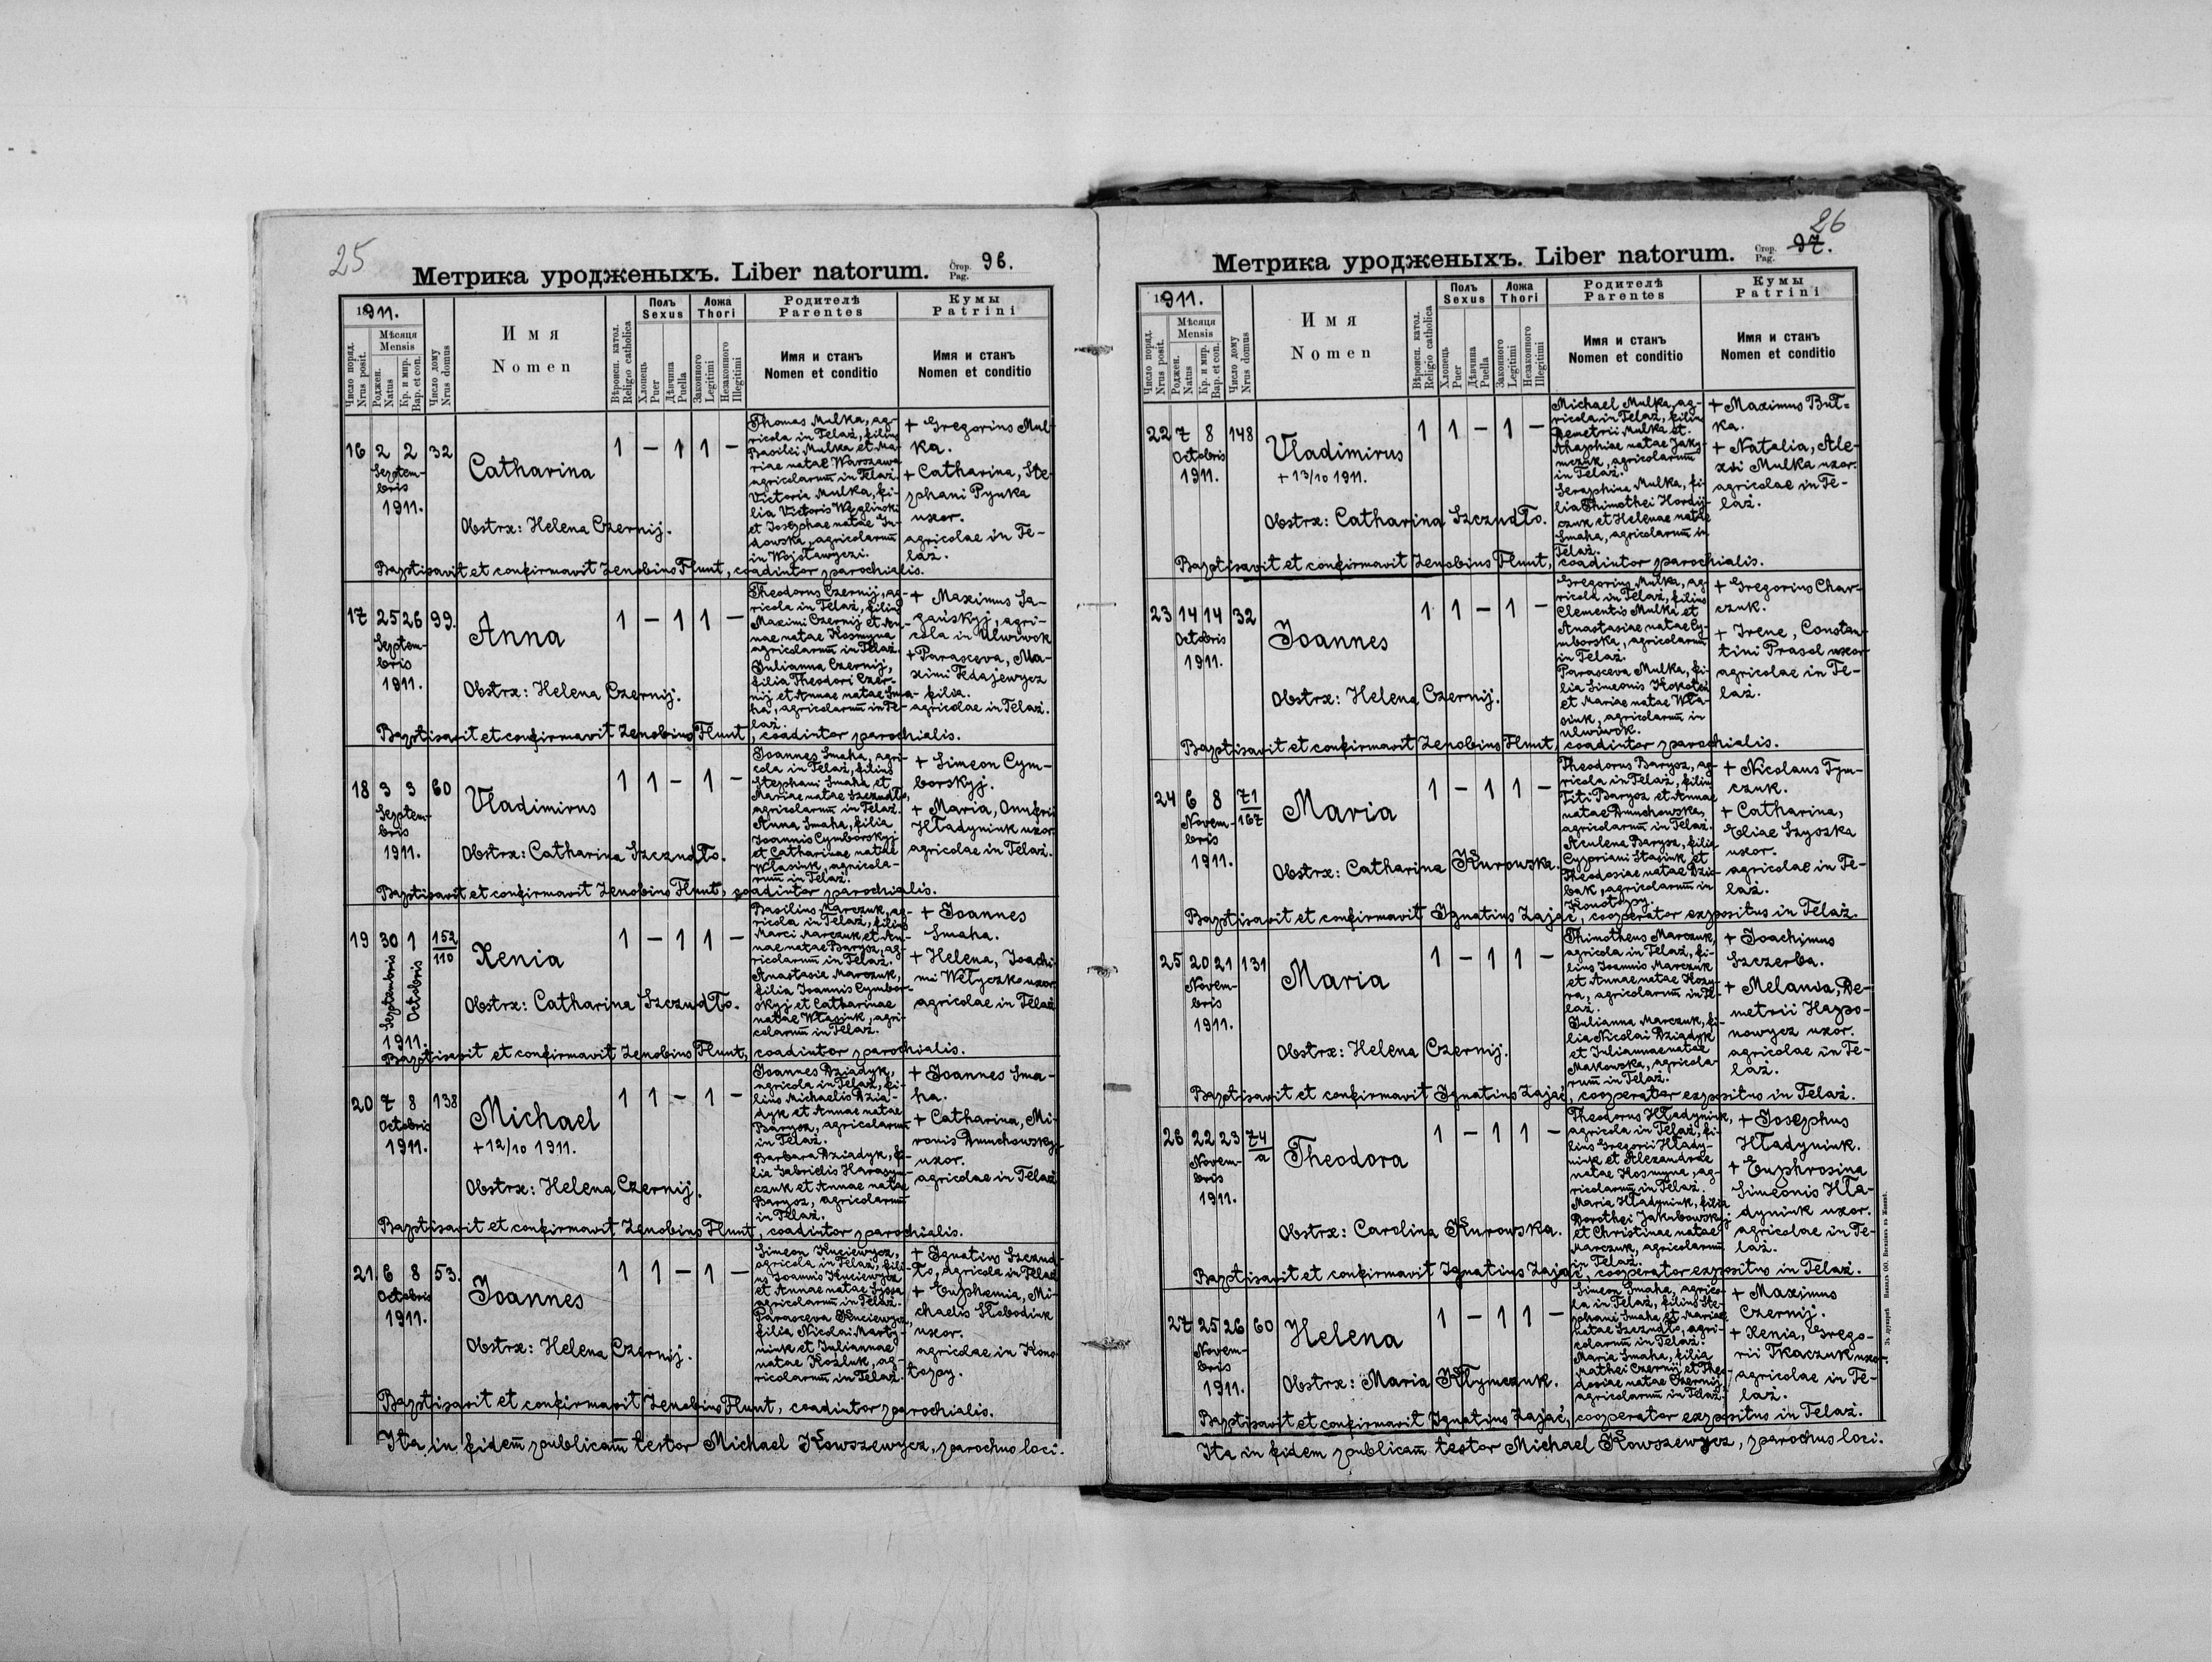 25
Метрика уродженыхъ. Liber natorum. Стор. Pag. 96.
1911.
Число поряд. Nrus posit.
Мѣсяця Mensis
Роджен. Natus
Кр. и мир. Bap. et con.
Число дому Nrus domus
Имя
Nomen
Вѣроисп. катол. Religio catholica
Полъ Sexus
Хлопець Puer
Дѣвчина Puella
Ложа Thori
Законного Legitimi
Незаконного Illegitimi
Родителѣ Parentes
Имя и станъ Nomen et conditio
Кумы Patrini
Имя и станъ Nomen et conditio
16 2 2 32
Septem-
bris
1911.
Catharina
1 – 1 1 –
Obstrx: Helena Czernij.
Thomas Mulka, ag-
ricola in Telaż, filius
Basilei Mulka et Ma-
riae natae Warszawa
agricolarum in Telaż.
Victoria Mulka, fi-
lia Victoris Węglinski
et Josephae natae Sa-
dowska, agricolarum
in Wojsławyczi.
+ Gregorius Mul-
ka.
+ Catharina, Ste-
phani Pynka
uxor.
agricolae in Te-
laż.
Baptisavit et confirmavit Zenobius Flunt, coadiutor parochialis.
17 25 26 99.
Septem-
bris
1911.
Anna
1 – 1 1 –
Obstrx: Helena Czernij.
Theodorus Czernij, ag-
ricola in Telaż, filius
Maximi Czernij et An-
nae natae Kosmyna
agricolarum in Telaż.
Julianna Czernij,
filia Theodori Czer-
nij et Annae natae Sma-
ha, agricolarum in Te-
laż.
+ Maximus Sa-
gański, agri-
cola in Ulwiwok
+ Parasceva, Ma-
ximi Fedajewycz
filia.
agricolae in Telaż.
Baptisavit et confirmavit Zenobius Flunt, coadiutor parochialis.
18 3 3 60
Septem-
bris
1911.
Vladimirus
1 1 – 1 –
Obstrx: Catharina Szczudło.
Joannes Smaha, agri-
cola in Telaż, filius
Stephani Smaha et
Mariae natae Szczudło,
agricolarum in Telaż.
Anna Smaha, filia
Joannis Cymborskyj
et Catharinae natae
Własiuk, agricola-
rum in Telaż.
+ Simeon Cym-
borskyj.
+ Maria, Onufrii
Hładyniuk uxor
agricolae in Telaż.
Baptisavit et confirmavit Zenobius Flunt, coadiutor parochialis.
19 30 1 152/110
Septembris Octobris
1911.
Xenia
1 – 1 1 –
Obstrx: Catharina Szczudło.
Basilius Marczuk, ag-
ricola in Telaż, filius
Marci Marczuk et An-
nae natae Barysz, ag-
ricolarum in Telaż.
Anastasia Marczuk,
filia Joannis Cymbor-
skyj et Catharinae
natae Własiuk, agri-
colarum in Telaż.
+ Joannes
Smaha.
+ Helena, Joachi-
mi Wełyczko uxor
agricolae in Telaż
Baptisavit et confirmavit Zenobius Flunt, coadiutor parochialis.
20 7 8 138
Octobris
1911.
Michael
+ 12/10 1911.
1 1 – 1 –
Obstrx: Helena Czernij.
Joannes Dziadyk,
agricola in Telaż, fi-
lius Michaelis Dzia-
dyk et Annae natae
Barysz, agricolarum
in Telaż.
Barbara Dziadyk, fi-
lia Gabrielis Harasym-
czuk et Annae natae
Barysz, agricolarum
in Telaż.
+ Joannes Sma-
ha.
+ Catharina, Mi-
ronis Dmuchowskyj
uxor.
agricolae in Telaż
Baptisavit et confirmavit Zenobius Flunt, coadiutor parochialis.
21. 6 8 53.
Octobris
1911.
Joannes
1 1 – 1 –
Obstrx: Helena Czernij.
Simeon Kuciewycz,
agricola in Telaż, fili-
us Joannis Kuciewycz
et Annae natae
agricolarum in Telaż.
Parasceva Kuciewycz,
filia Nicolai Marty-
niuk et Juliannae
natae Kozluk, ag-
ricolarum in Telaż.
+ Ignatius Szczud-
ło, agricola in Telaż
+ Euphemia, Mi-
chaelis Słobodiuk
uxor.
agricolae in Kono-
topy.
Baptisavit et confirmavit Zenobius Flunt, coadiutor parochialis.
Ita in fidem publicam testor Michael Kowszewycz, parochus loci.
26
Метрика уродженыхъ. Liber natorum. Стор. Pag. 97.
1911.
Число поряд. Nrus posit.
Мѣсяця Mensis
Роджен. Natus
Кр. и мир. Bap. et con.
Число дому Nrus domus
Имя
Nomen
Вѣроисп. катол. Religio catholica
Полъ Sexus
Хлопець Puer
Дѣвчина Puella
Ложа Thori
Законного Legitimi
Незаконного Illegitimi
Родителѣ Parentes
Имя и станъ Nomen et conditio
Кумы Patrini
Имя и станъ Nomen et conditio
22 7 8 148
Octobris
1911.
Vladimirus
+ 13/10 1911.
1 1 – 1 –
Obstrx: Catharina Szczudło.
Michael Mulka, ag-
ricola in Telaż, filius
Demetrii Mulka et
Ahaphiae natae Jaky-
mczuk, agricolarum
in Telaż.
Seraphina Mulka, fi-
lia Thimothei Hordij-
czuk et Helenae natae
Smaha, agricolarum in
Telaż.
+ Maximus But-
ka.
+ Natalia, Ale-
xii Mulka uxor.
agricolae in Te-
laż.
Baptisavit et confirmavit Zenobius Flunt, coadiutor parochialis.
23 14 14 32
Octobris
1911.
Joannes
1 1 – 1 –
Obstrx: Helena Czernij.
Gregorius Mulka, ag-
ricola in Telaż, filius
Clementis Mulka et
Anastasiae natae Cy-
mborska, agricolarum
in Telaż.
Parasceva Mulka, fi-
lia Simeonis
et Mariae natae Wła-
siuk, agricolarum in
Ulwiwok.
+ Gregorius Char-
czuk.
+ Irene, Constan-
tini Prasol uxor
agricolae in Te-
laż.
Baptisavit et confirmavit Zenobius Flunt, coadiutor parochialis.
24 6 8 71/167
Novem-
bris
1911.
Maria
1 – 1 1 –
Obstrx: Catharina Kurowska.
Theodorus Barysz, ag-
ricola in Telaż, filius
Titi Barysz et Annae
natae Dmuchowska,
agricolarum in Telaż.
Aculena Barysz, filia
Cypriani Stasiuk et
Theodosiae natae Dzi-
bak, agricolarum in
Konotopy.
+ Nicolaus Tym-
czuk.
+ Catharina,
Eliae Szyszka
uxor.
agricolae in Te-
laż.
Baptisavit et confirmavit Ignatius Zając, cooperator expositus in Telaż.
25 20 21 131
Novem-
bris
1911.
Maria
1 – 1 1 –
Obstrx: Helena Czernij.
Thimotheus Marczuk,
agricola in Telaż, fi-
lius Joannis Marczuk
et Annae natae Kozy-
ra, agricolarum in Te-
laż.
Julianna Marczuk, fi-
lia Nicolai Dziadyk
et Juliannae natae
Makowska, agricola-
rum in Telaż.
+ Joachimus
Szczerba.
+ Melania, De-
metrii Hapo-
nowycz uxor.
agricolae in Te-
laż.
Baptisavit et confirmavit Ignatius Zając, cooperator expositus in Telaż.
26 22 23 74/a
Novem-
bris
1911.
Theodora
1 – 1 1 –
Obstrx: Carolina Kurowska.
Theodorus Hładyniuk,
agricola in Telaż, fi-
lius Gregorii Hłady-
niuk et Alexandrae
natae Kosmyna, ag-
ricolarum in Telaż.
Maria Hładyniuk, filia
Dorothei Jakubowskyj
et Christinae natae
Marczuk, agricolarum
in Telaż.
+ Josephus
Hładyniuk.
+ Euphrosina
Simeonis Hła-
dyniuk uxor.
agricolae in Te-
laż.
Baptisavit et confirmavit Ignatius Zając, cooperator expositus in Telaż.
27 25 26 60
Novem-
bris
1911.
Helena
1 – 1 1 –
Obstrx: Maria Kłymczuk.
Simeon Smaha, agrico-
la in Telaż, filius Ste-
phani Smaha et Mariae
natae Szczudło, agri-
colarum in Telaż.
Maria Smaha, filia
Mathei Czernij et Theo-
dosiae natae Czernij,
agricolarum in Telaż.
+ Maximus
Czernij.
+ Xenia, Grego-
rii Tkaczuk uxor.
agricolae in Te-
laż.
Baptisavit et confirmavit Ignatius Zając, cooperator expositus in Telaż.
Ita in fidem publicam testor Michael Kowszewycz, parochus loci.